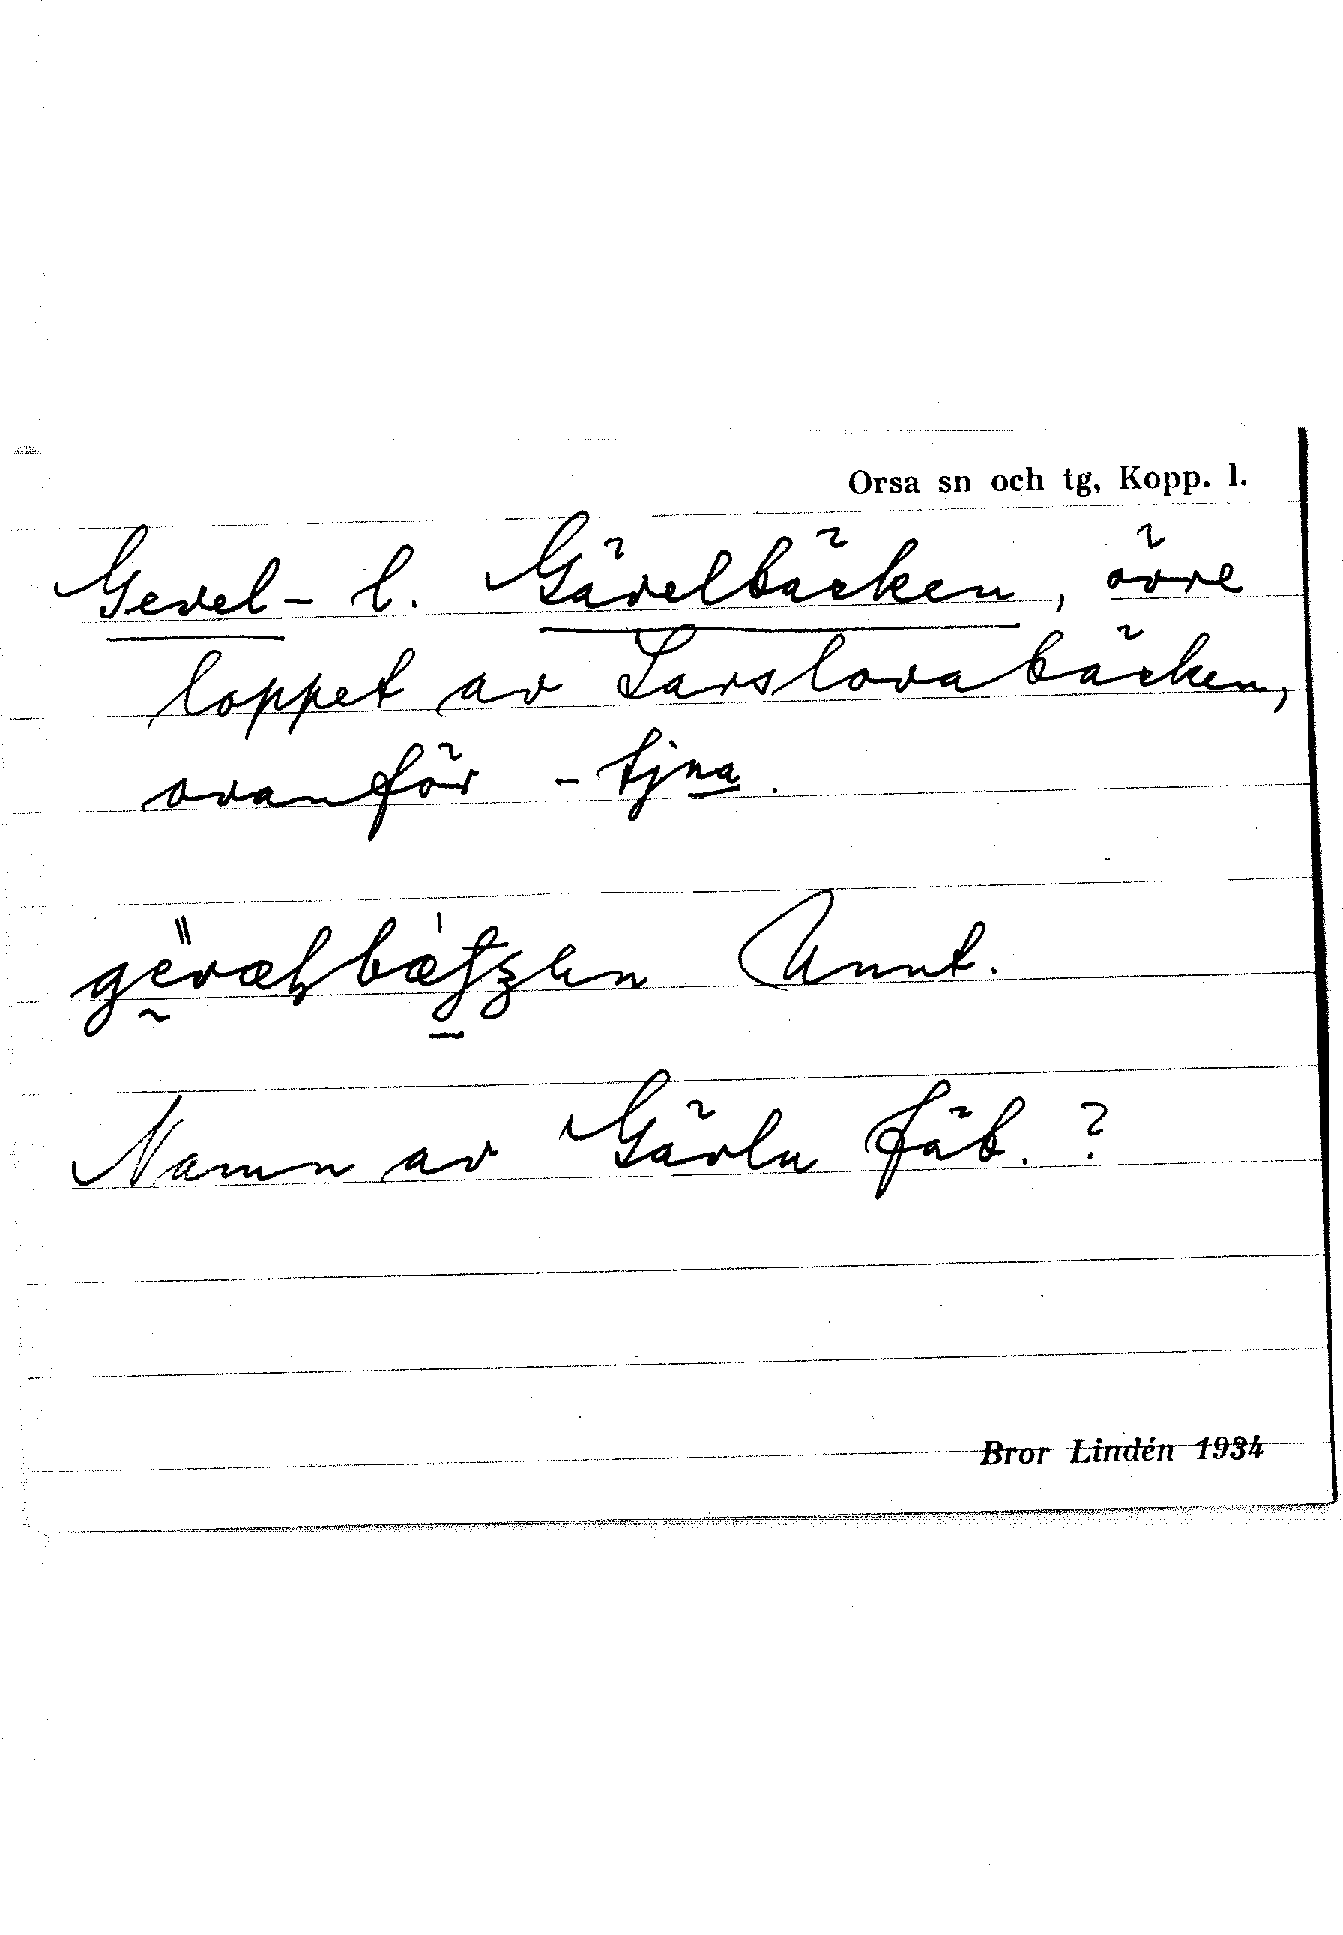 Orsa sn och tg, Kopp. l.
Gevel- l. Gävelbäcken, övre
loppet av Larslovabäcken,
ovanför -tjna.
Unnt.
Namn av Gävlu fäb.?
Bror Lindén 1934